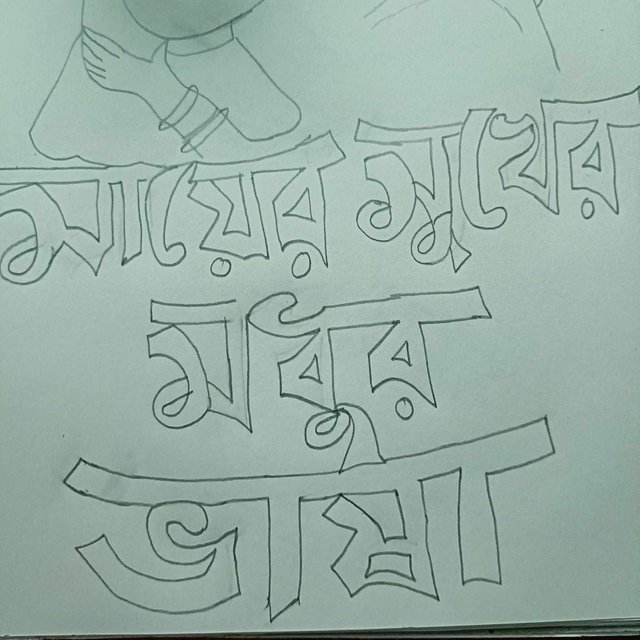 মায়ের মুখের
মধুর
ভাষা